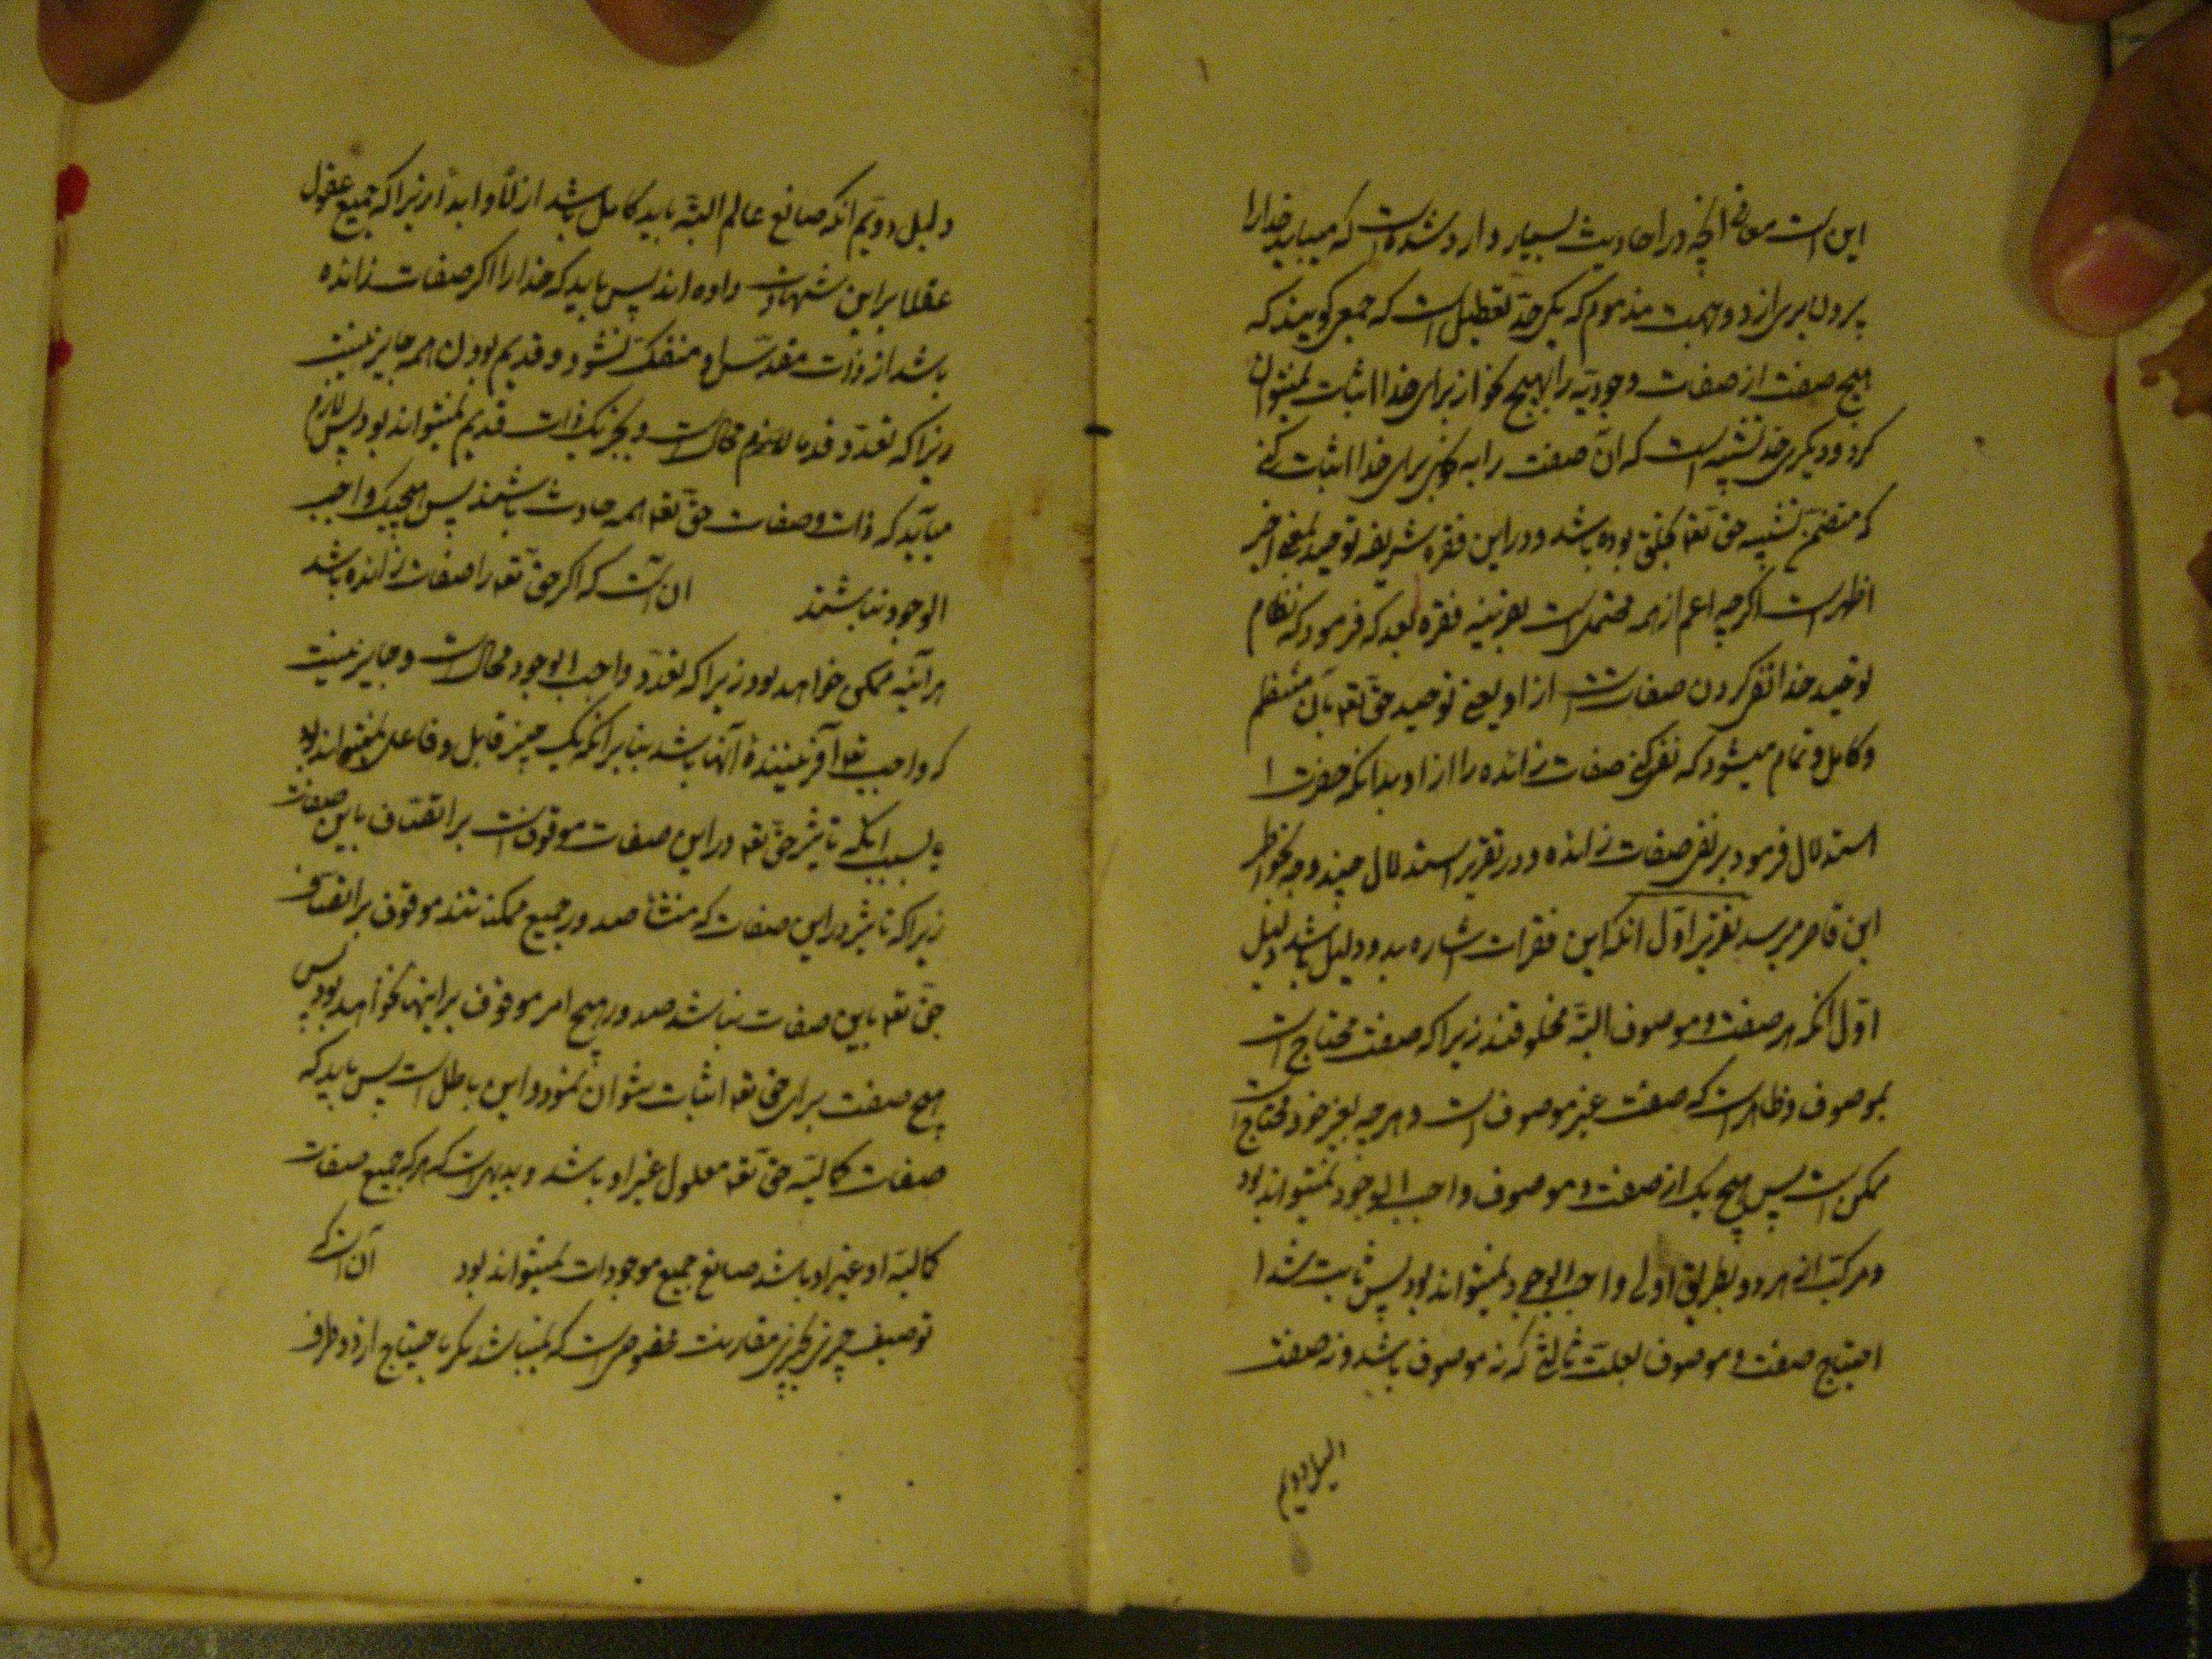 این است معانی آنچه در احادیث بسیار وارد شده است که میباید خدا را
برون بری از دو جهت مذموم که یکی حد تعطیل است که جمعی کویند که
هیچ صفت از صفات وجودیه را بهیچ نحو از برای خدا اثبات نمیتوان
کرد و دیکری حد تشبیه است که آن صفت را به نحوی برای خدا اثبات کنی
که متضمن تشبیه حق تعه بخلق بوده باشد و در این فقره شریفه توحید بمعنی اخیر
اظهر است اکرچه اعم از همه محتمل است بقرینه فقره بعد که فرمود که نظام
توحید خدا نفی کردن صفات است از او یعنی توحید حق تعه بآن منتظم
و کامل و تمام میشود که نفی کنی صفات زائده را از او بدانکه حضرت ا
استدلال فرمود بر نفی صفات زائده و در تقریر استدلال چند وجه بخواطر
این قاصر میرسد تقریر اول آنکه این فقرات اشاره بدو دلیل باشد دلیل
اول آنکه هر صفت و موصوف البته مخلوقند زیرا که صفت محتاج است
بموصوف و ظاهر است که صفت غیر موصوف است و هرچه بغیر خود محتاج است
ممکن است پس هیچ یک از صفت و موصوف واجب الوجود نمیتواند بود
و مرکب از هر دو بطریق اولی واجب الوجود نمیتواند بود پس ثابت شد ا
احتیاج صفت و موصوف بعلت ثالثی که نه موصوف باشد و نه صفت
دلیل دویم انکه صانع عالم البته باید کامل باشد ازلاً و ابداً زیرا که جمیع عقول
عقلا بر این شهادت داده اند پس باید که خدا را اکر صفات زائده
باشد از ذات مقدس او منفک نشود و قدیم بودن همه جایز نیست
زیرا که تعدد قدما لازم محال است و بجز یک ذات قدیم نمیتواند بود پس لازم
میآید که ذات و صفات حق تعه همه حادث باشند پس هیچیک واجب
الوجود نباشند ان است که اکر حق تعه را صفات زائده باشد
هر آینه ممکن خواهد بود زیرا که تعدد واجب الوجود محال است و جایز نیست
که واجب تعه آفریننده آنها باشد بنابر انکه یک چیز قابل و فاعل نمیتواند بود
یا بسبب اینکه تاثیر حق تعه در این صفات موقوف است بر اتصاف باین صفات
زیرا که تاثیر در این صفات که منشأ صدور جمیع ممکناتند موقوف بر اتصاف
حق تعه باین صفات نباشد صدور هیچ امر موقوف بر اینها نخواهد بود پس
هیچ صفت برای حق تعه اثبات نتوان نمود و این باطل است پس باید که
صفات کمالیه حق تعه معلول غیر او باشد و بدیهی است که هر که جمیع صفات
کمالیه او غیر او باشد صانع جمیع موجودات نمیتواند بود آن است که
توصیف چیزی بچیزی مقارنت مخصوصی است که نمیباشد مکر باحتیاج از دو طرف